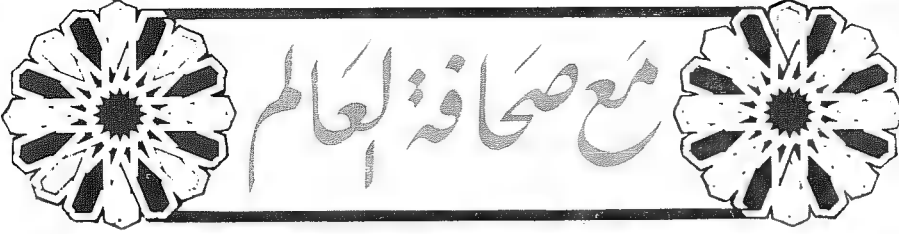 مَع صحَافة العَالم